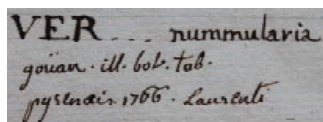 VER.... nummularia
goüan. ill. bot. tab.
pyrenæis 1766. Laurenti